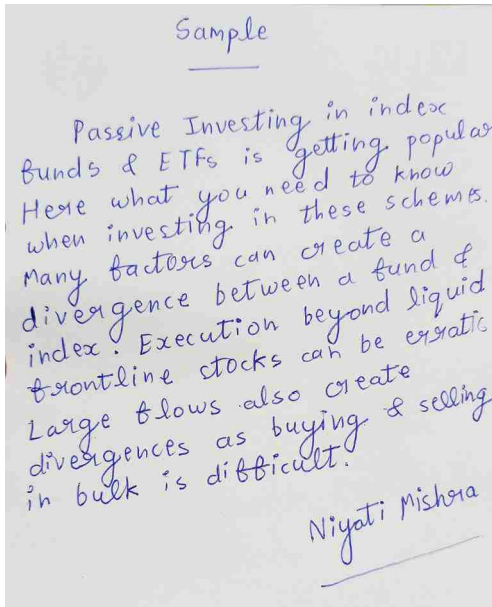 Sample
Passive Investing in index
funds & ETFs is getting popular
Here what you need to know
when investing in these schemes.
Many factors can create a
divergence between a fund &
index. Execution beyond liquid
frontline stocks can be erratic
Large flows also create
divergences as buying & selling
in bulk is difficult.
Niyati Mishra